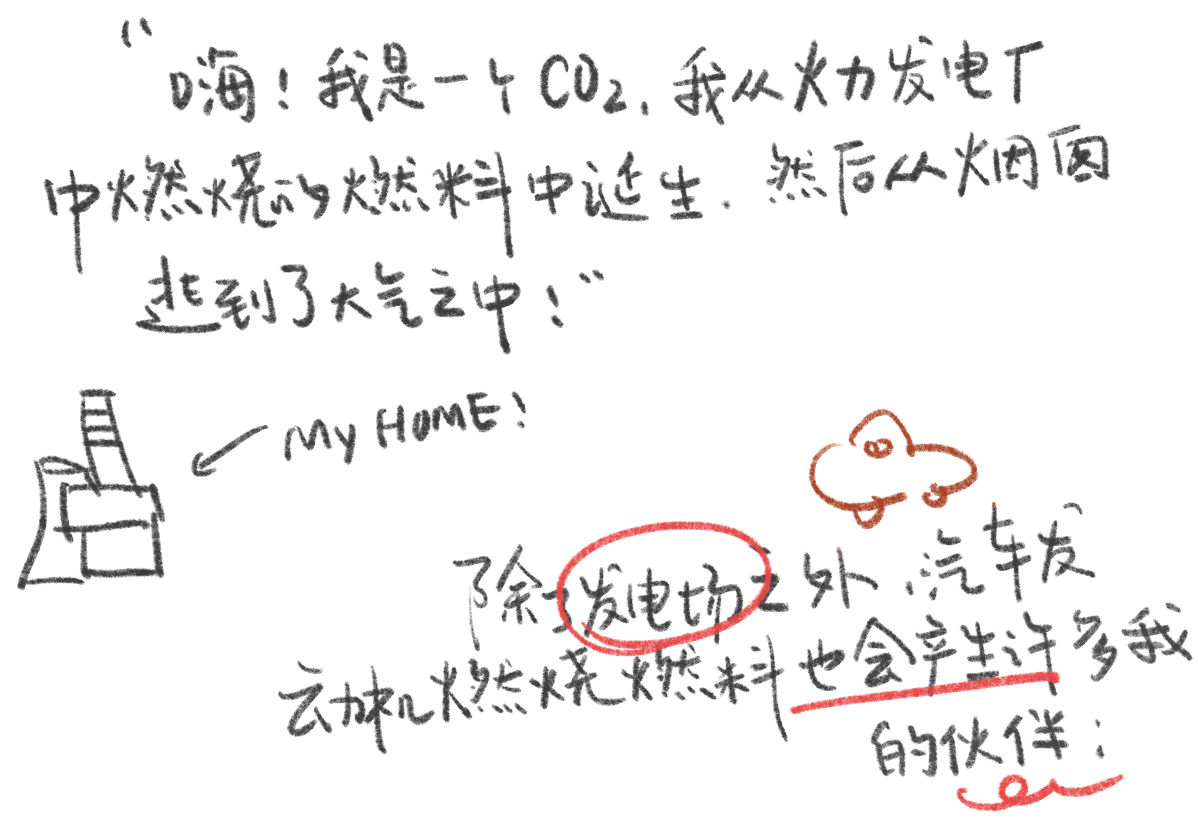 “嗨！我是一个CO₂，我从火力发电厂
中燃烧的燃料中诞生．然后从烟囱
逃到了大气之中！”
MY HOME！
除了发电场之外，汽车发
动机燃烧燃料也会产生许多我
的伙伴：